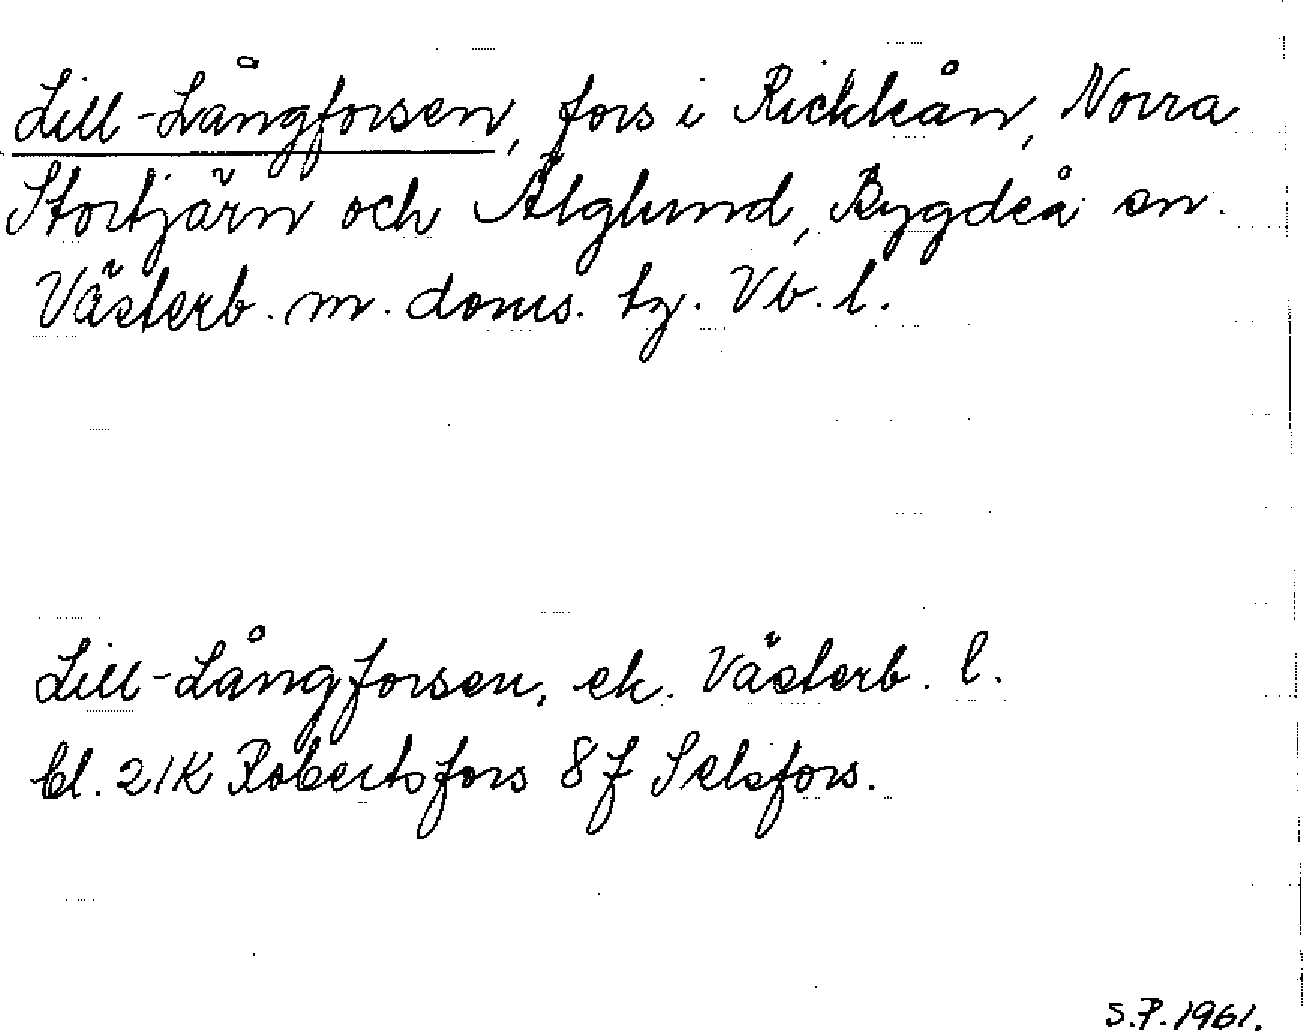 Lill-Långforsen, fors i Rickleån, Norra
Stortjärn och Älglund, Bygdeå sn.
Västerb. m. doms. tg. Vb. l.
Lill-Långforsen, ek. Västerb. l.
bl. 21K Robertsfors 8f Selsfors.
S.P. 1961.